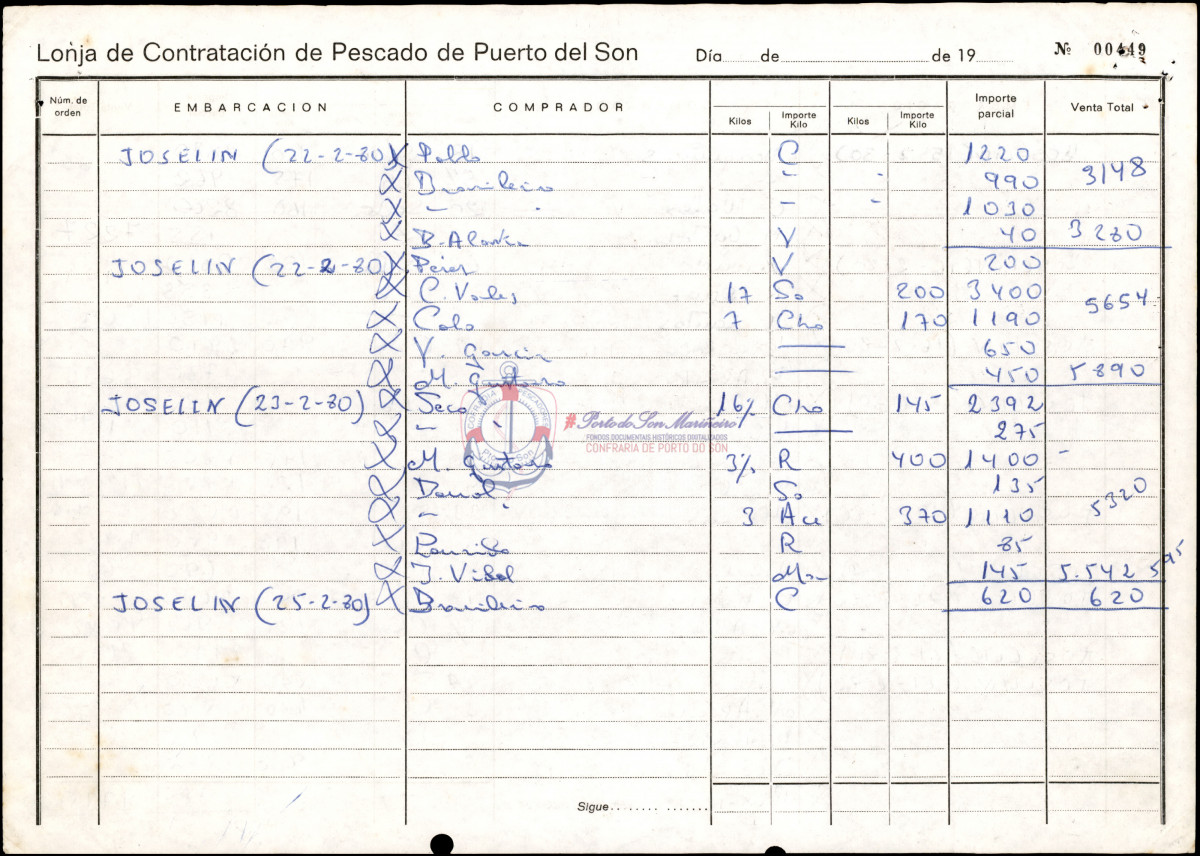 Lonja de Contratación de Pescado de Puerto del Son Día de de 19 Nº 00449
Núm. de orden EMBARCACION COMPRADOR Kilos Importe Kilo Kilos Importe Kilo Importe parcial Venta Total
JOSELIN (22-2-80) X Pablo C 1220 3148
X Brasileiro " 990
X " " 1030
X V 40 3280
JOSELIN (22-2-80) X Perez V 200
X C. Vales 17 So 200 3400 5654
X Colo 7 Cho 170 1190
X V. Garcia 650
X M. Gustavo 450 5890
JOSELIN (23-2-80) X Seco 16½ Cho 145 2392
X " " 275
X M. Gustavo 3½ R 400 1400 -
X So 135 5320
X " " 3 Ace 370 1110
X R 85
X J. Vidal 145 5.542 595
JOSELIN (25-2-80) X Brasileiro C 620 620
COFRADIA PESCADORES
Pto. del Son
#Porto do Son Mariñeiro
FONDOS DOCUMENTAIS HISTÓRICOS DIGITALIZADOS
CONFRARIA DE PORTO DO SON
Sigue